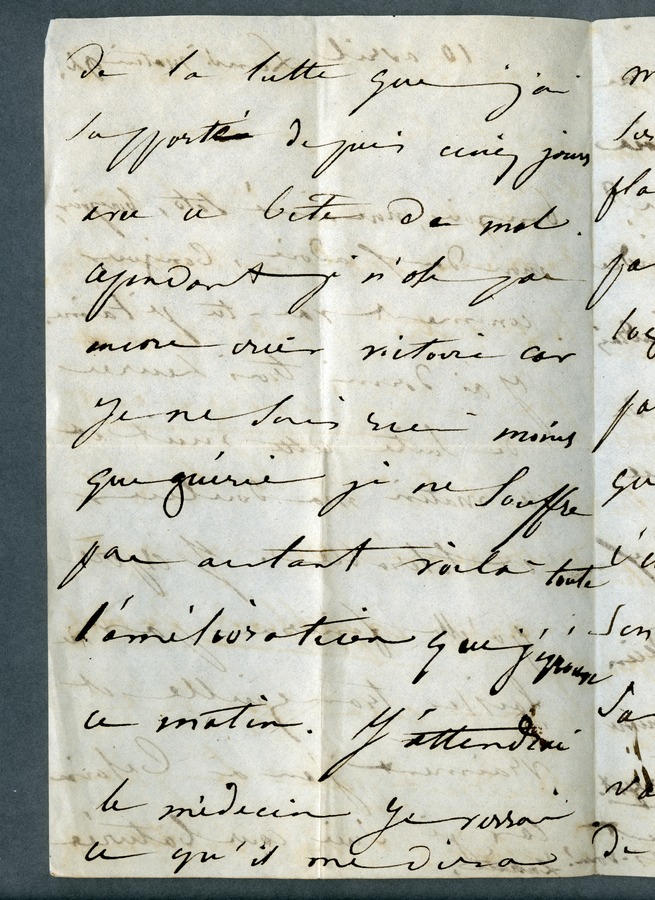 de la lutte que j'ai
supporté depuis cinq jours
avec ce bête de mal.
cependant je n'ose pas
encore crier victoire car
je ne suis rien moins
que guérie je ne souffre
pas autant voilà toute
l'amélioration que j'éprouve
ce matin. J'attendrai
le médecin je verrai
ce qu'il me dira